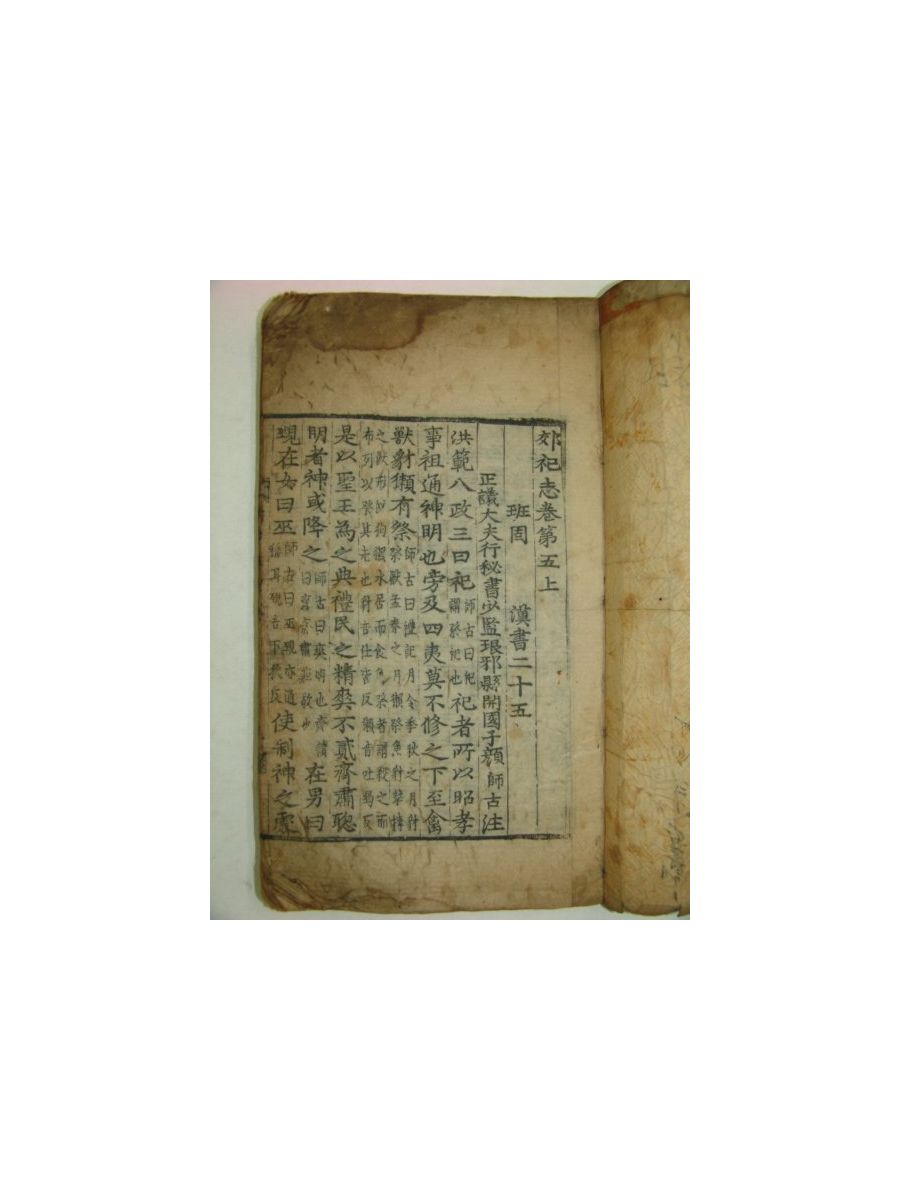 郊祀志卷第五上
班固 漢書二十五
正議大夫行秘書少監琅邪縣開國子顏師古注
洪範八政三曰祀師古曰祀謂祭祀也祀者所以昭孝
事祖通神明也旁及四夷莫不修之下至禽
獸豺獺有祭師古曰禮記月令季秋之月豺祭獸孟春之月獺祭魚豺摯搏
之獸形如狗獺水居而食魚祭者謂殺之而布列以祭其先也豺音仕皆反獺音吐曷反
是以聖王為之典禮民之精爽不貳齊肅聰
明者神或降之師古曰爽明也齊讀曰齋齋肅莊敬也在男曰
覡在女曰巫師古曰巫覡亦通稱耳覡音下狄反使制神之處